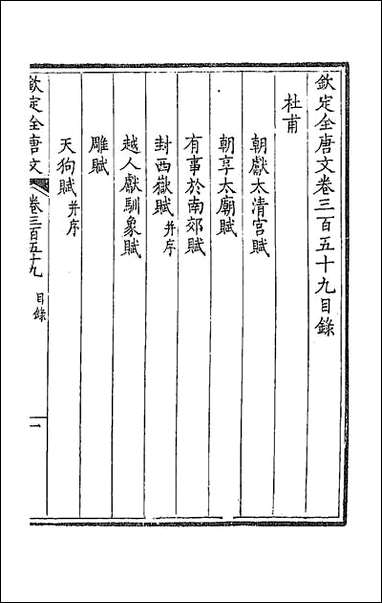 欽定全唐文卷三百五十九目錄
杜甫
朝獻太清宮賦
朝享太廟賦
有事於南郊賦
封西嶽賦并序
越人獻馴象賦
雕賦
天狗賦并序
欽定全唐文 卷三百五十九 目錄 一